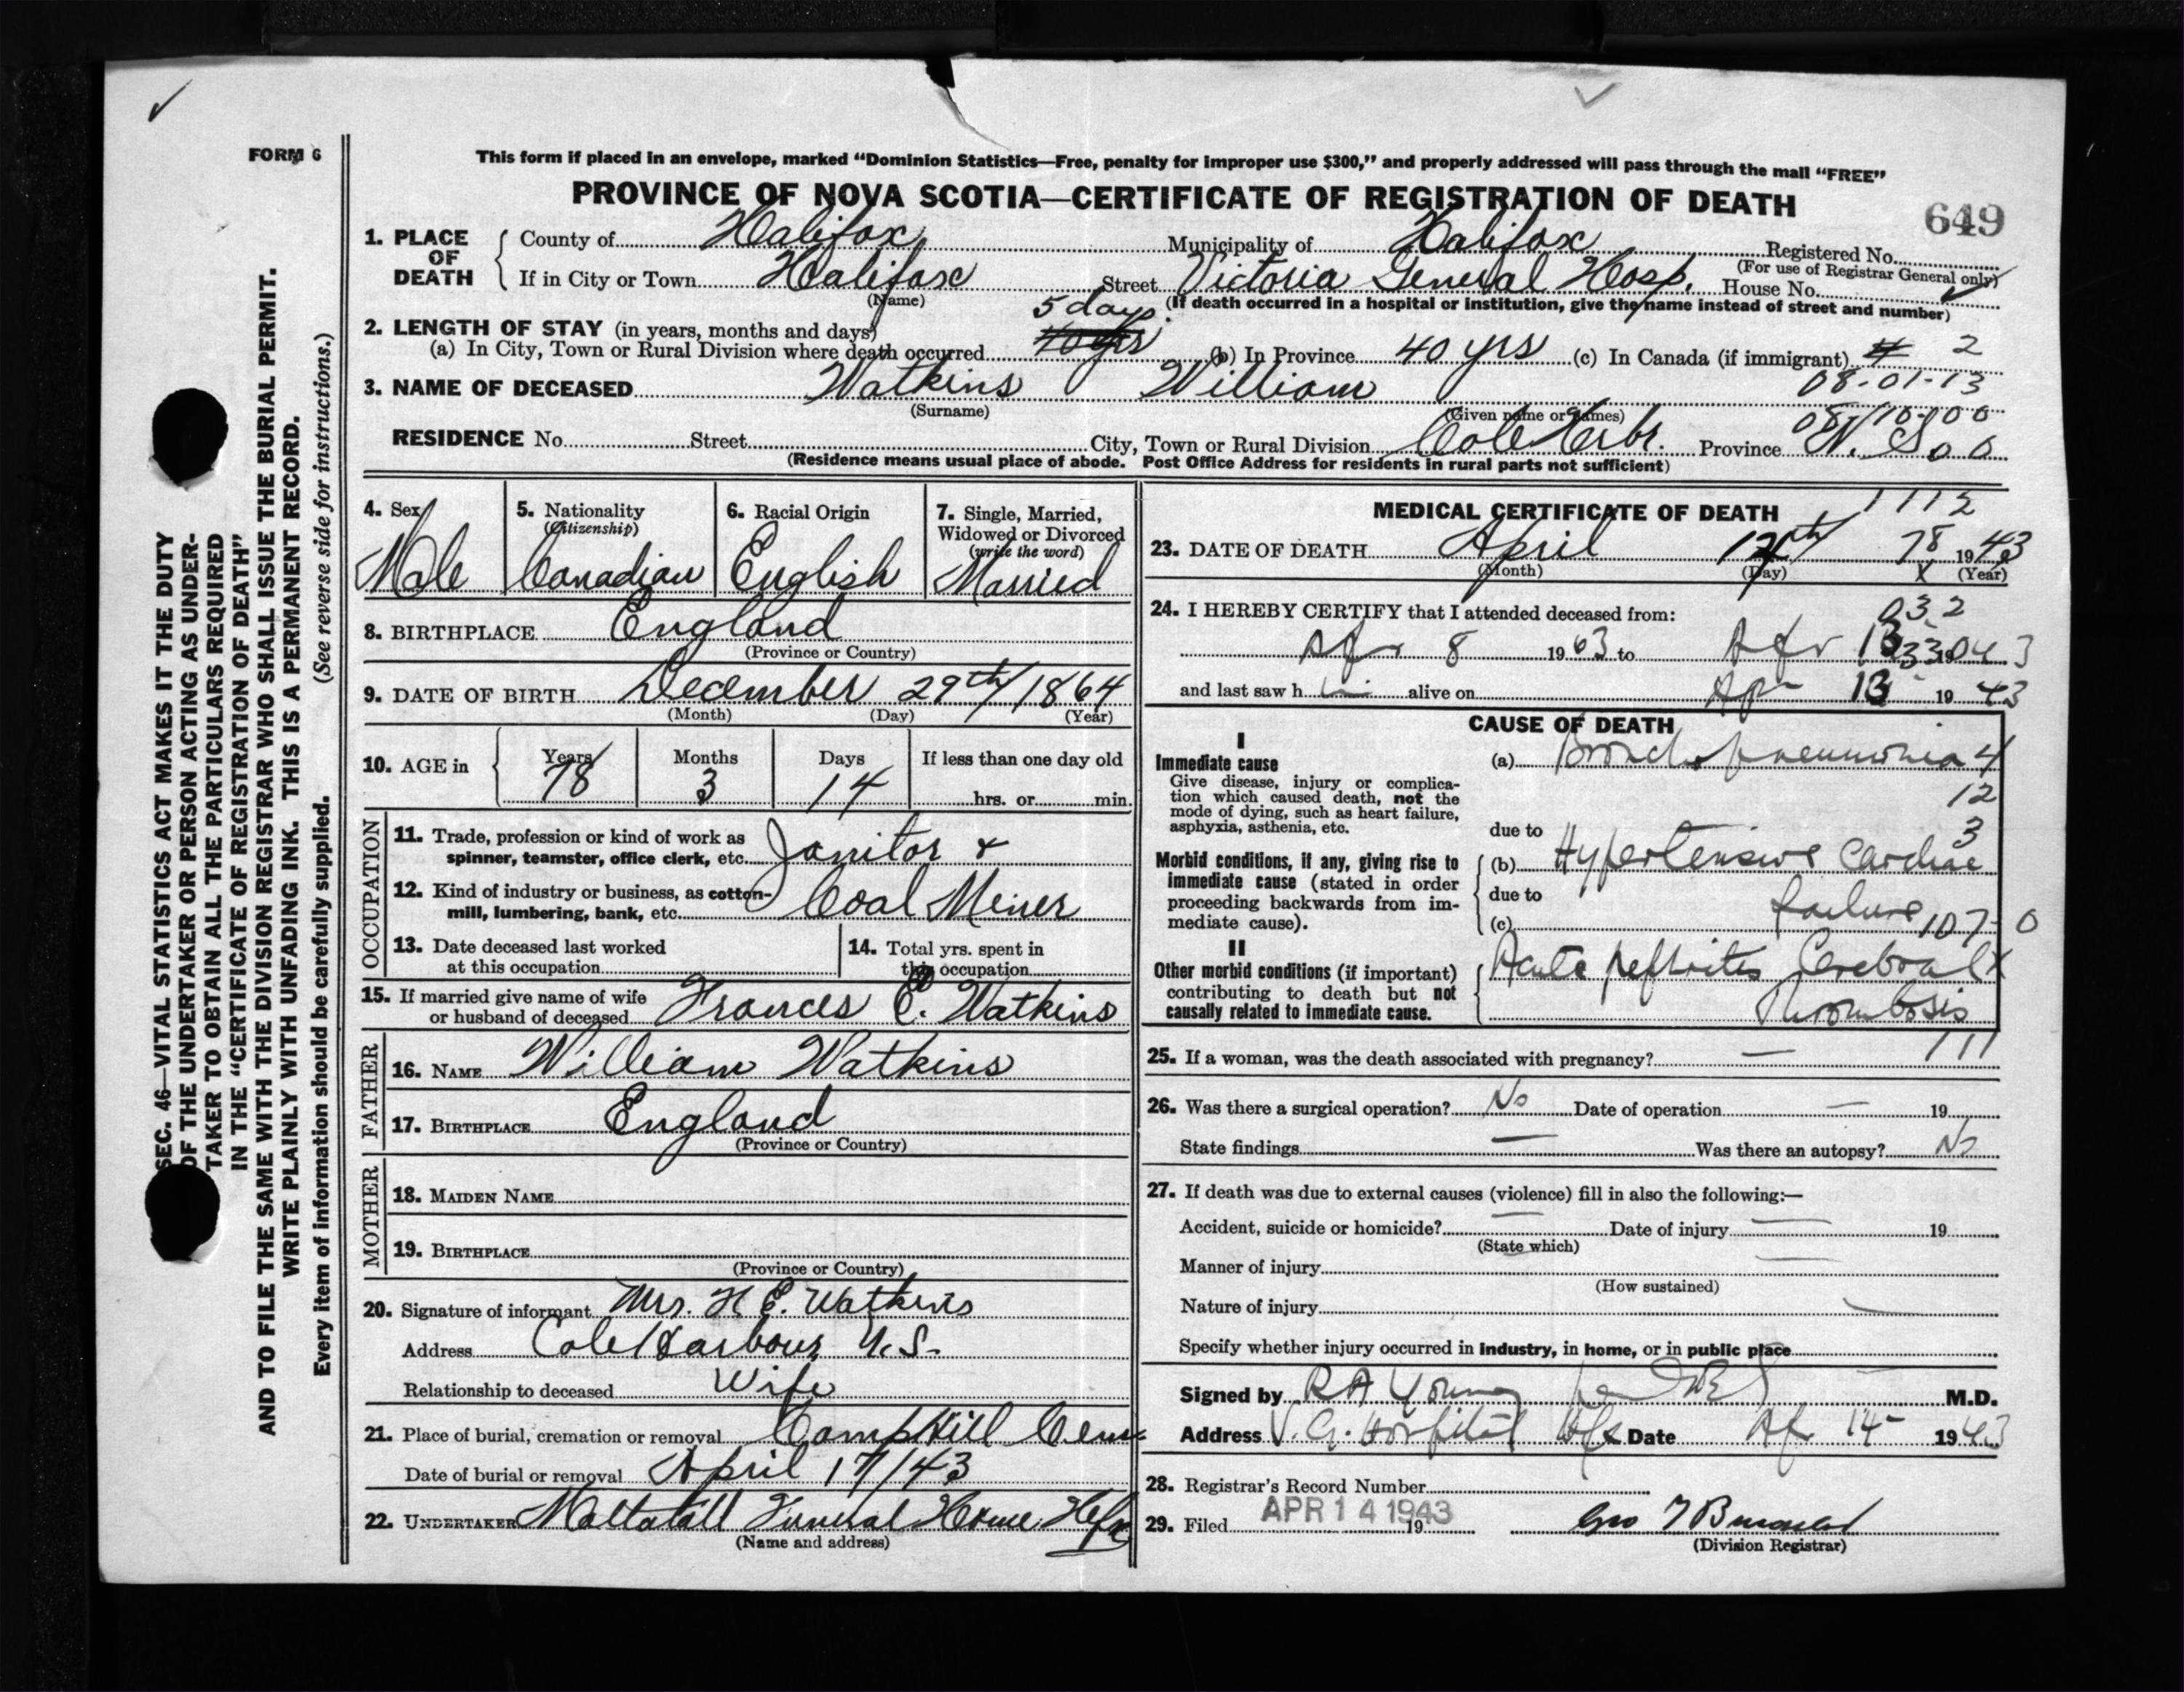 FORM 6
This form if placed in an envelope, marked “Dominion Statistics—Free, penalty for improper use $300,” and properly addressed will pass through the mail “FREE”
PROVINCE OF NOVA SCOTIA—CERTIFICATE OF REGISTRATION OF DEATH
649
1. PLACE OF DEATH { County of Halifax Municipality of Halifax Registered No.
(For use of Registrar General only)
If in City or Town Halifax Street Victoria General Hosp. House No.
(Name) (If death occurred in a hospital or institution, give the name instead of street and number)
5 days
2. LENGTH OF STAY (in years, months and days)
(a) In City, Town or Rural Division where death occurred 40 yrs (b) In Province 40 yrs (c) In Canada (if immigrant) 2
08-01-13
3. NAME OF DECEASED Watkins William
(Surname) (Given name or Names)
RESIDENCE No. Street City, Town or Rural Division Cole Herbr. Province N. S.
(Residence means usual place of abode. Post Office Address for residents in rural parts not sufficient)
4. Sex Male
5. Nationality (Citizenship) Canadian
6. Racial Origin English
7. Single, Married, Widowed or Divorced (write the word) Married
8. BIRTHPLACE England
(Province or Country)
9. DATE OF BIRTH December 29th/1864
(Month) (Day) (Year)
10. AGE in { Years 78 Months 3 Days 14 If less than one day old
hrs. or min.
OCCUPATION
11. Trade, profession or kind of work as
spinner, teamster, office clerk, etc. Janitor &
12. Kind of industry or business, as cotton-
mill, lumbering, bank, etc. Coal Miner
13. Date deceased last worked
at this occupation
14. Total yrs. spent in
this occupation
15. If married give name of wife
or husband of deceased Frances E. Watkins
FATHER
16. NAME William Watkins
17. BIRTHPLACE England
(Province or Country)
MOTHER
18. MAIDEN NAME
19. BIRTHPLACE
(Province or Country)
20. Signature of informant Mrs. H E. Watkins
Address Cole Harbour N.S.
Relationship to deceased Wife
21. Place of burial, cremation or removal Camp Hill Cem
Date of burial or removal April 17/43
22. UNDERTAKER Mattatall Funeral Home Hfx
(Name and address)
1112
MEDICAL CERTIFICATE OF DEATH
23. DATE OF DEATH April 78 1943
(Month) (Day) (Year)
24. I HEREBY CERTIFY that I attended deceased from:
032
Apr 8 1963 to Apr 13
and last saw him alive on Apr 13 1943
CAUSE OF DEATH
I
Immediate cause
Give disease, injury or complica-
tion which caused death, not the
mode of dying, such as heart failure,
asphyxia, asthenia, etc.
(a) Broncho pneumonia 4
12
3
Morbid conditions, if any, giving rise to
immediate cause (stated in order
proceeding backwards from im-
mediate cause).
due to
(b) Hypertensive Cardiac
due to
failure
(c) 107-0
II
Other morbid conditions (if important)
contributing to death but not
causally related to immediate cause.
Acute nephritis Cerebral X
Thrombosis
25. If a woman, was the death associated with pregnancy? — 111
26. Was there a surgical operation? No Date of operation — 19
State findings — Was there an autopsy? No
27. If death was due to external causes (violence) fill in also the following:—
Accident, suicide or homicide? — Date of injury — 19
(State which)
Manner of injury —
(How sustained)
Nature of injury —
Specify whether injury occurred in industry, in home, or in public place
Signed by R A Young M.D.
Address V. G. Hospital Hfx Date Ap 14 1943
28. Registrar's Record Number
29. Filed APR 14 1943 19
(Division Registrar)
SEC. 46—VITAL STATISTICS ACT MAKES IT THE DUTY
OF THE UNDERTAKER OR PERSON ACTING AS UNDER-
TAKER TO OBTAIN ALL THE PARTICULARS REQUIRED
IN THE “CERTIFICATE OF REGISTRATION OF DEATH”
AND TO FILE THE SAME WITH THE DIVISION REGISTRAR WHO SHALL ISSUE THE BURIAL PERMIT.
WRITE PLAINLY WITH UNFADING INK. THIS IS A PERMANENT RECORD.
Every item of information should be carefully supplied. (See reverse side for instructions.)